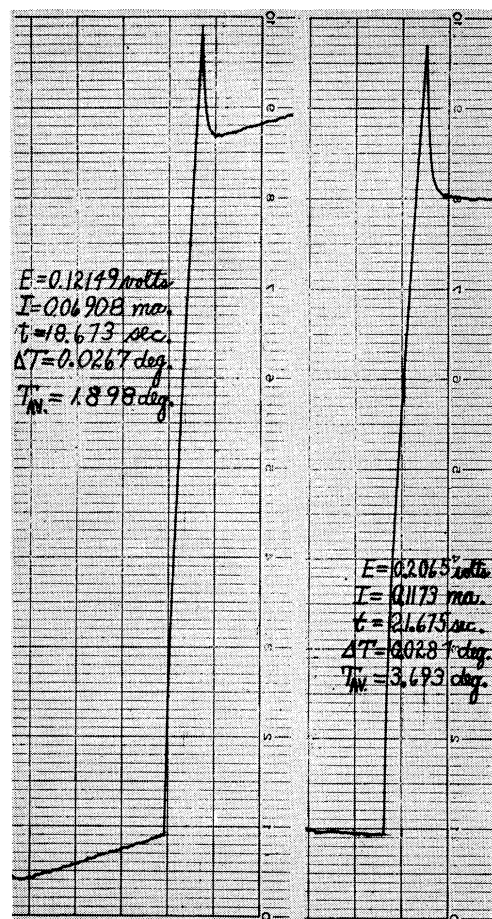 E=0.12149 volts
I=0.06908 ma.
t=18.673 sec.
ΔT=0.0267 deg.
T_AV. = 1.898 deg.
10
9
8
7
6
5
4
2
1
0
10
9
8
7
6
5
E=0.2065 volts
I=0.1173 ma.
t=21.675 sec.
ΔT=0.0287 deg.
T_AV. = 3.693 deg.
2
1
0